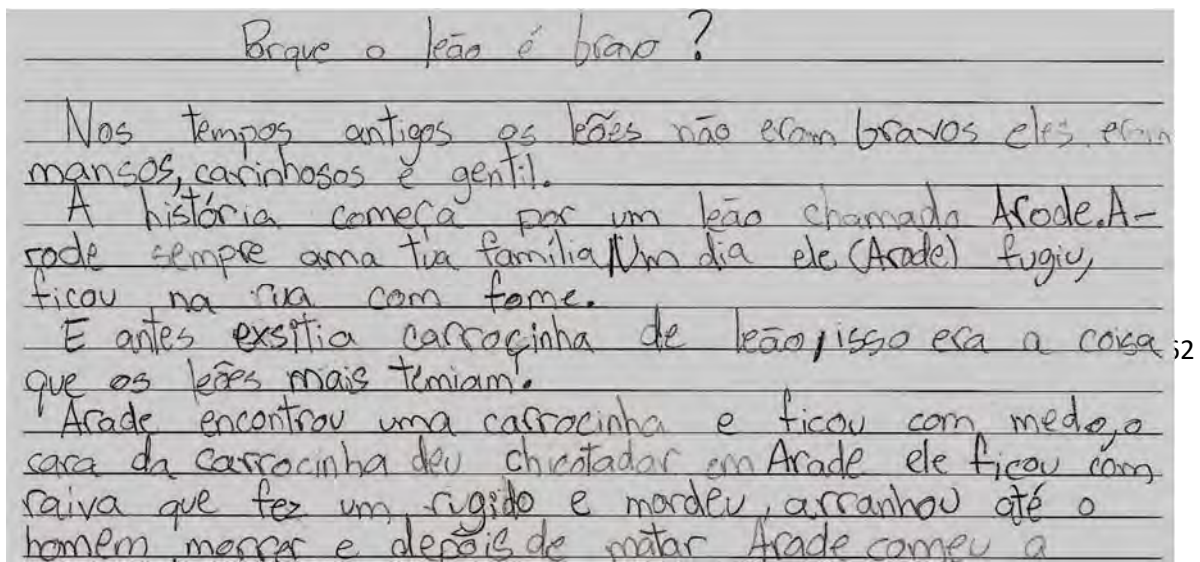 Porque o leão é bravo?
Nos tempos antigos os leões não eram bravos eles eram
mansos, carinhosos e gentil.
A história começa por um leão chamado Arode. A-
rode sempre ama tua família Um dia ele (Arade) fugiu,
ficou na rua com fome.
E antes exsitia carrocinha de leão, isso era a coisa
62
que os leões mais temiam.
Arade encontrou uma carrocinha e ficou com medo, o
cara da carrocinha deu chicotadar em Arade ele ficou com
raiva que fez um rugido e mordeu, arranhou até o
homem morrer e depois de matar Arade comeu a